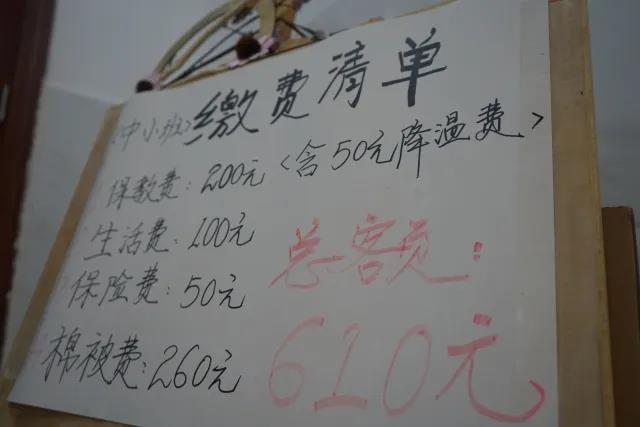 (中小班)缴费清单
保教费:200元<含50元降温费>
生活费:100元
保险费:50元
棉被费:260元
总客员:
610元